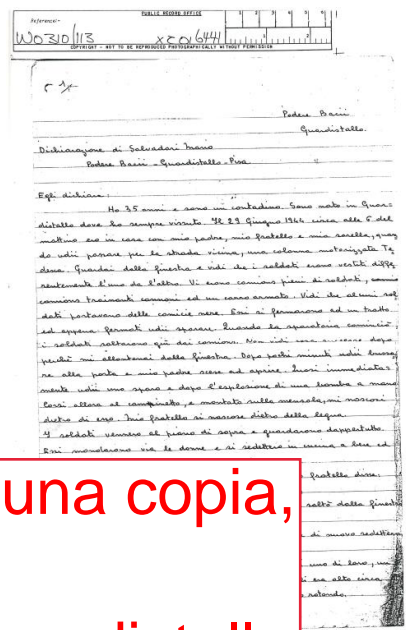 PUBLIC RECORD OFFICE
Reference:-
1 2 3 4 5 6
WO310/113
XC016441
1 2
COPYRIGHT - NOT TO BE REPRODUCED PHOTOGRAPHICALLY WITHOUT PERMISSION
Podere Bacii
Guardistallo.
Dichiarazione di Salvadori Mario
Podere Bacii - Guardistallo - Pisa
Egli dichiara:
Ho 35 anni e sono un contadino. Sono nato in Guar=
distallo dove ho sempre vissuto. Il 29 Giugno 1944 circa alle 6 del
mattino ero in casa con mio padre, mio fratello e mia sorella, quan
do udii passare per la strada vicina, una colonna motorizzata Te
desca. Guardai dalla finestra e vidi che i soldati erano vestiti diffe
rentemente l'uno da l'altro. Vi erano camions pieni di soldati,
camions trainanti cannoni ed un carro armato. Vidi che alcuni sol
dati portavano delle camicie nere. Essi si fermarono ad un tratto
ed appena fermati udii sparare. Quando la sparatoria cominciò,
i soldati saltarono giù dai camions. Non vidi cosa dopo
perché mi allontanai dalla finestra. Dopo pochi minuti udii bussa
re alla porta e mio padre scese ad aprire. Quasi immediata=
mente udii uno sparo e dopo l'esplosione di una bomba a mano
Corsi allora al e montato sulla mensola, mi nascosi
dietro di essa. Mio fratello si nascose dietro della legna.
I soldati vennero al piano di sopra e guardarono dappertutto.
Essi mandarono via le donne e si sedettero in cucina a bere ed
fratello disse:
saltò dalla finestra
di nuovo sedettero
uno di loro, un
era alto circa
rotondo.
una copia,